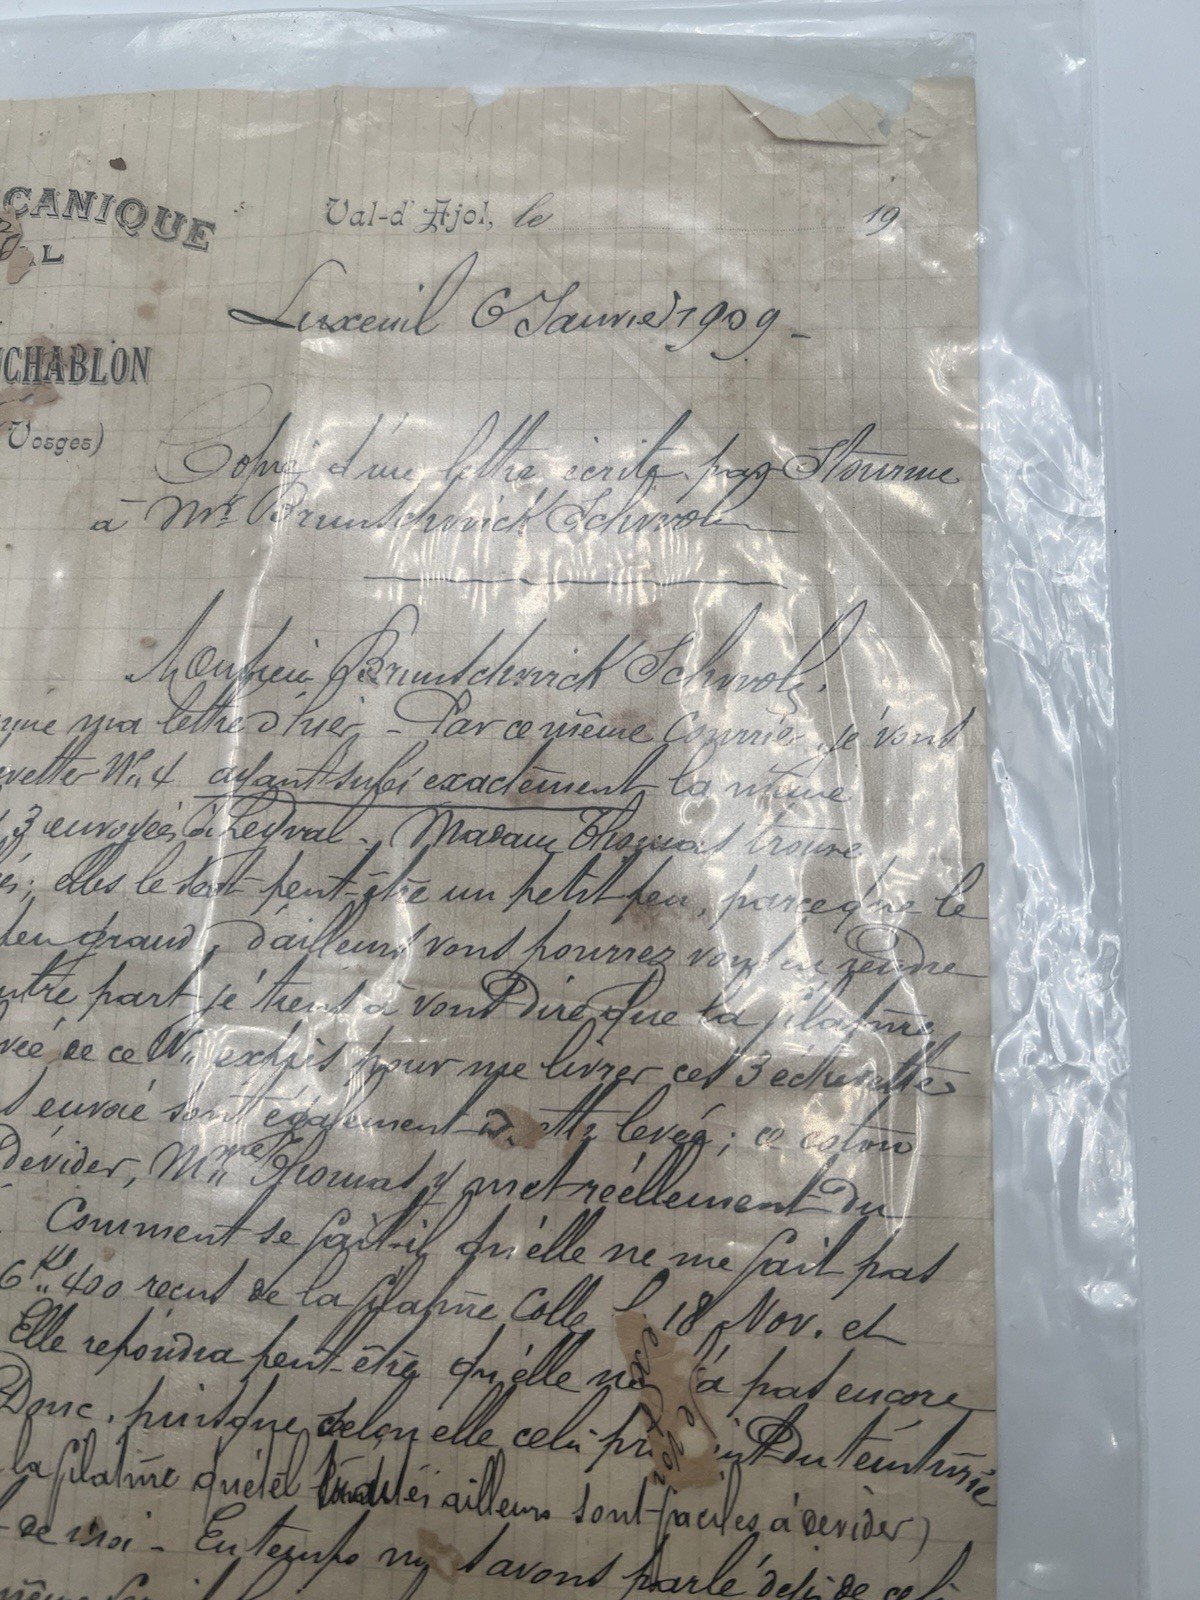 CANIQUE
AL
Val-d'Ajol, le 19
Luxeuil 6 Janvier 1909 -
CHABLON
Vosges)
Copie d'une lettre écrite par Stourme
à Mr. Brunschwick Schwob
Monsieur Brunschwick Schwob,
ma lettre d'hier - Par ce même Courrier, je vous
No 4 ayant subi exactement la même
3 envoyées à Leyval - Madame Thomas trouve
elles le sont peut-être un petit peu, parceque le
peu grand, d'ailleurs vous pourrez vous en rendre
part je tiens à vous dire que la filature
de ce No exprès pour me livrer ces 3 échevettes
envoié sont également de cette levée; ce coton
dévider, Mme Thomas y met réellement du
Comment se fait-il qu'elle ne me fait pas
6 ks 400 recus de la filature Colle le 18 Nov. et
Elle répondra peut-être qu'elle ne à pas encore
Donc, puisque selon elle celui du teinturier
la filature ailleurs sont faciles à dévider)
de moi - En temps nous avons parlé déjà de
même